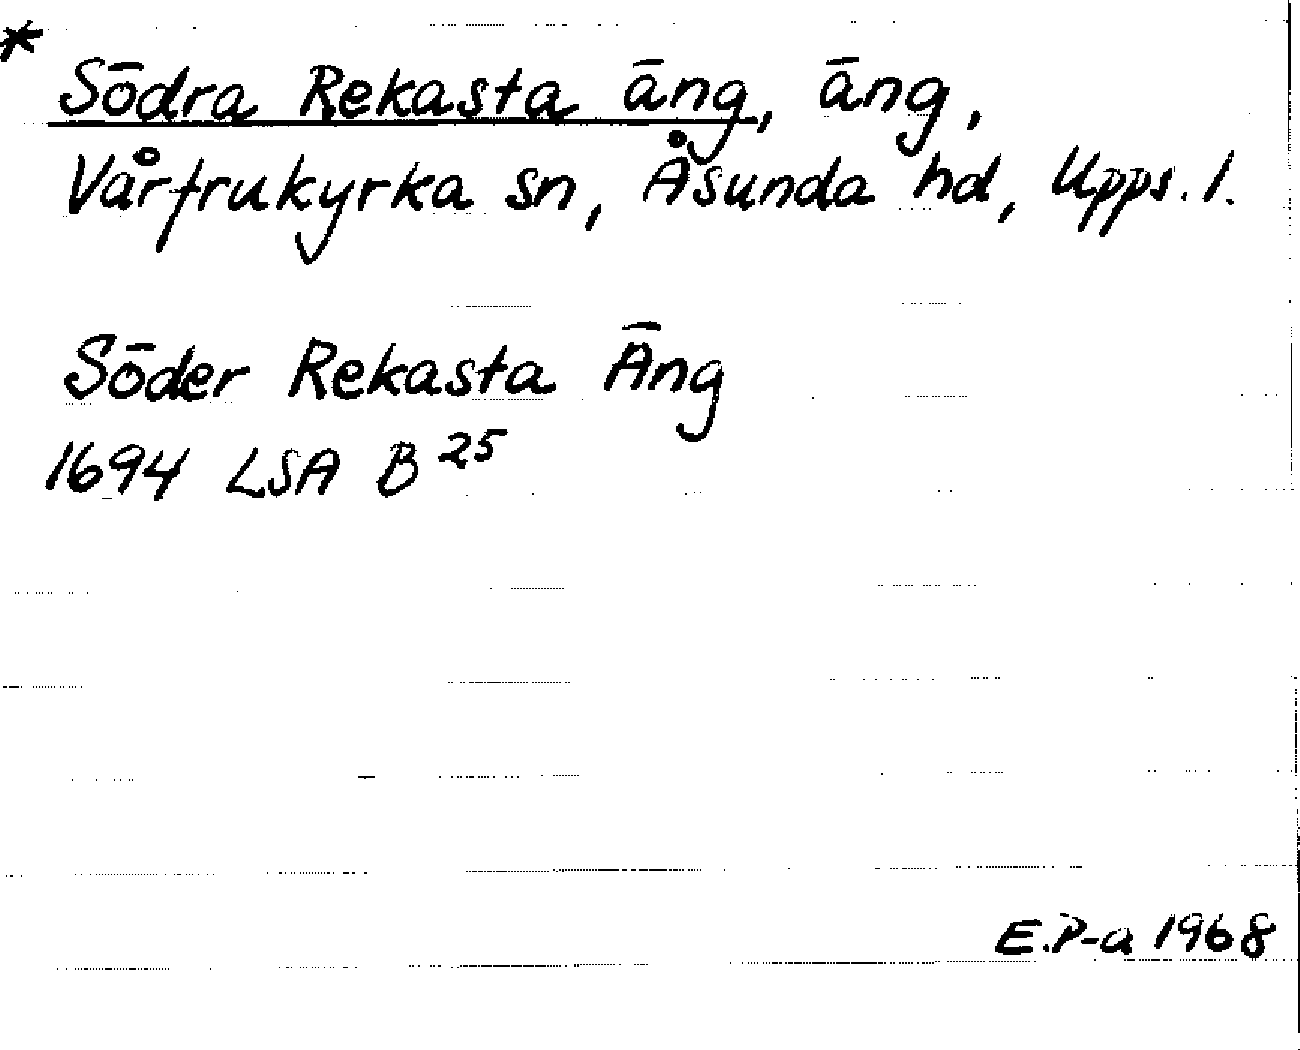 * Södra Rekasta äng, äng,
Vårfrukyrka sn, Åsunda hd, Upps. l.
Söder Rekasta Äng
1694 LSA B 25
E.P-a 1968